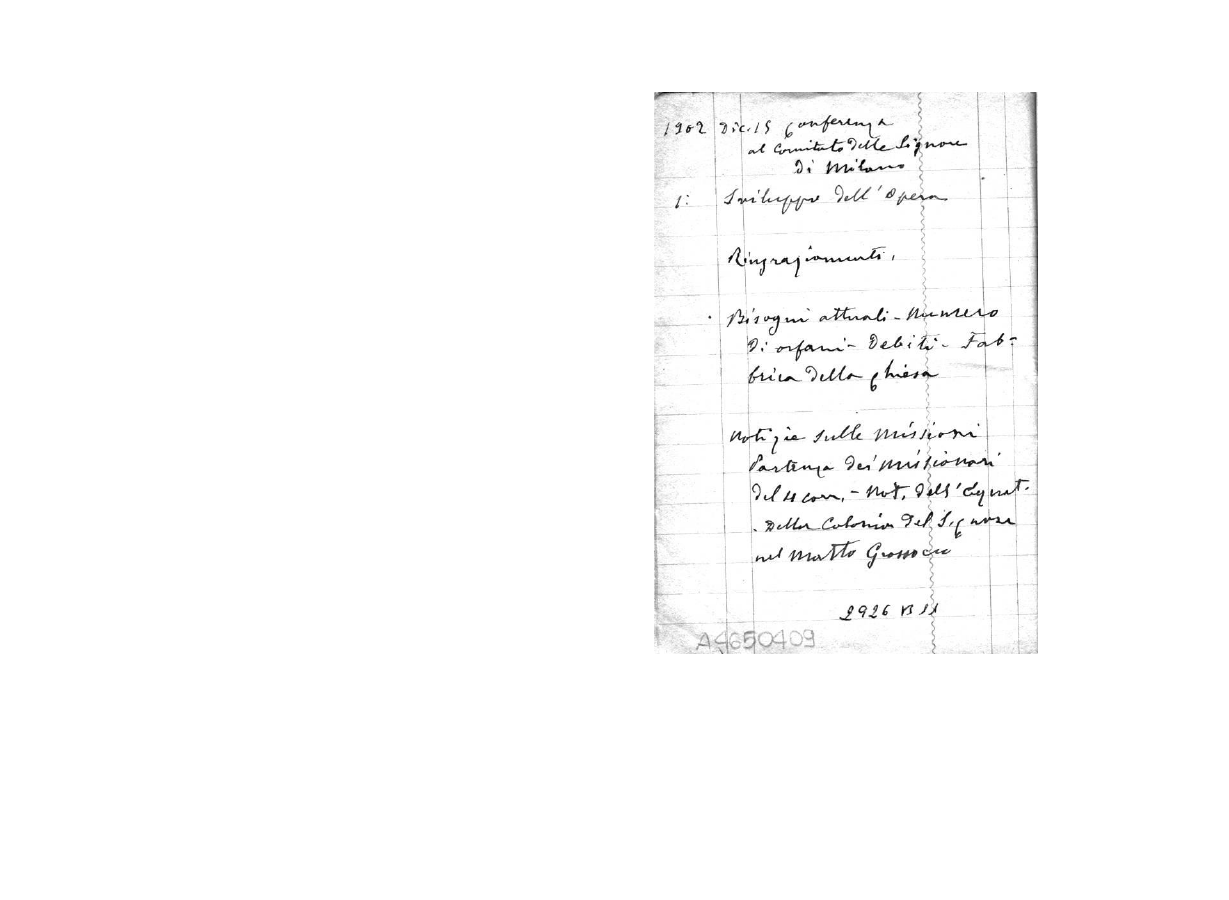 1902 Dic. 15 Conferenza
al Comitato delle Signore
di Milano
1: Sviluppo dell'Opera
Ringraziamenti.
Bisogni attuali - Numero
di orfani - Debiti - Fab=
brica della Chiesa
Notizie sulle Missioni
Partenza dei Missionari
del 4 corr. - Not. dell'Equat.
- Della Colonia del Signore
nel Matto Grosso
2926 B 11
A4650409